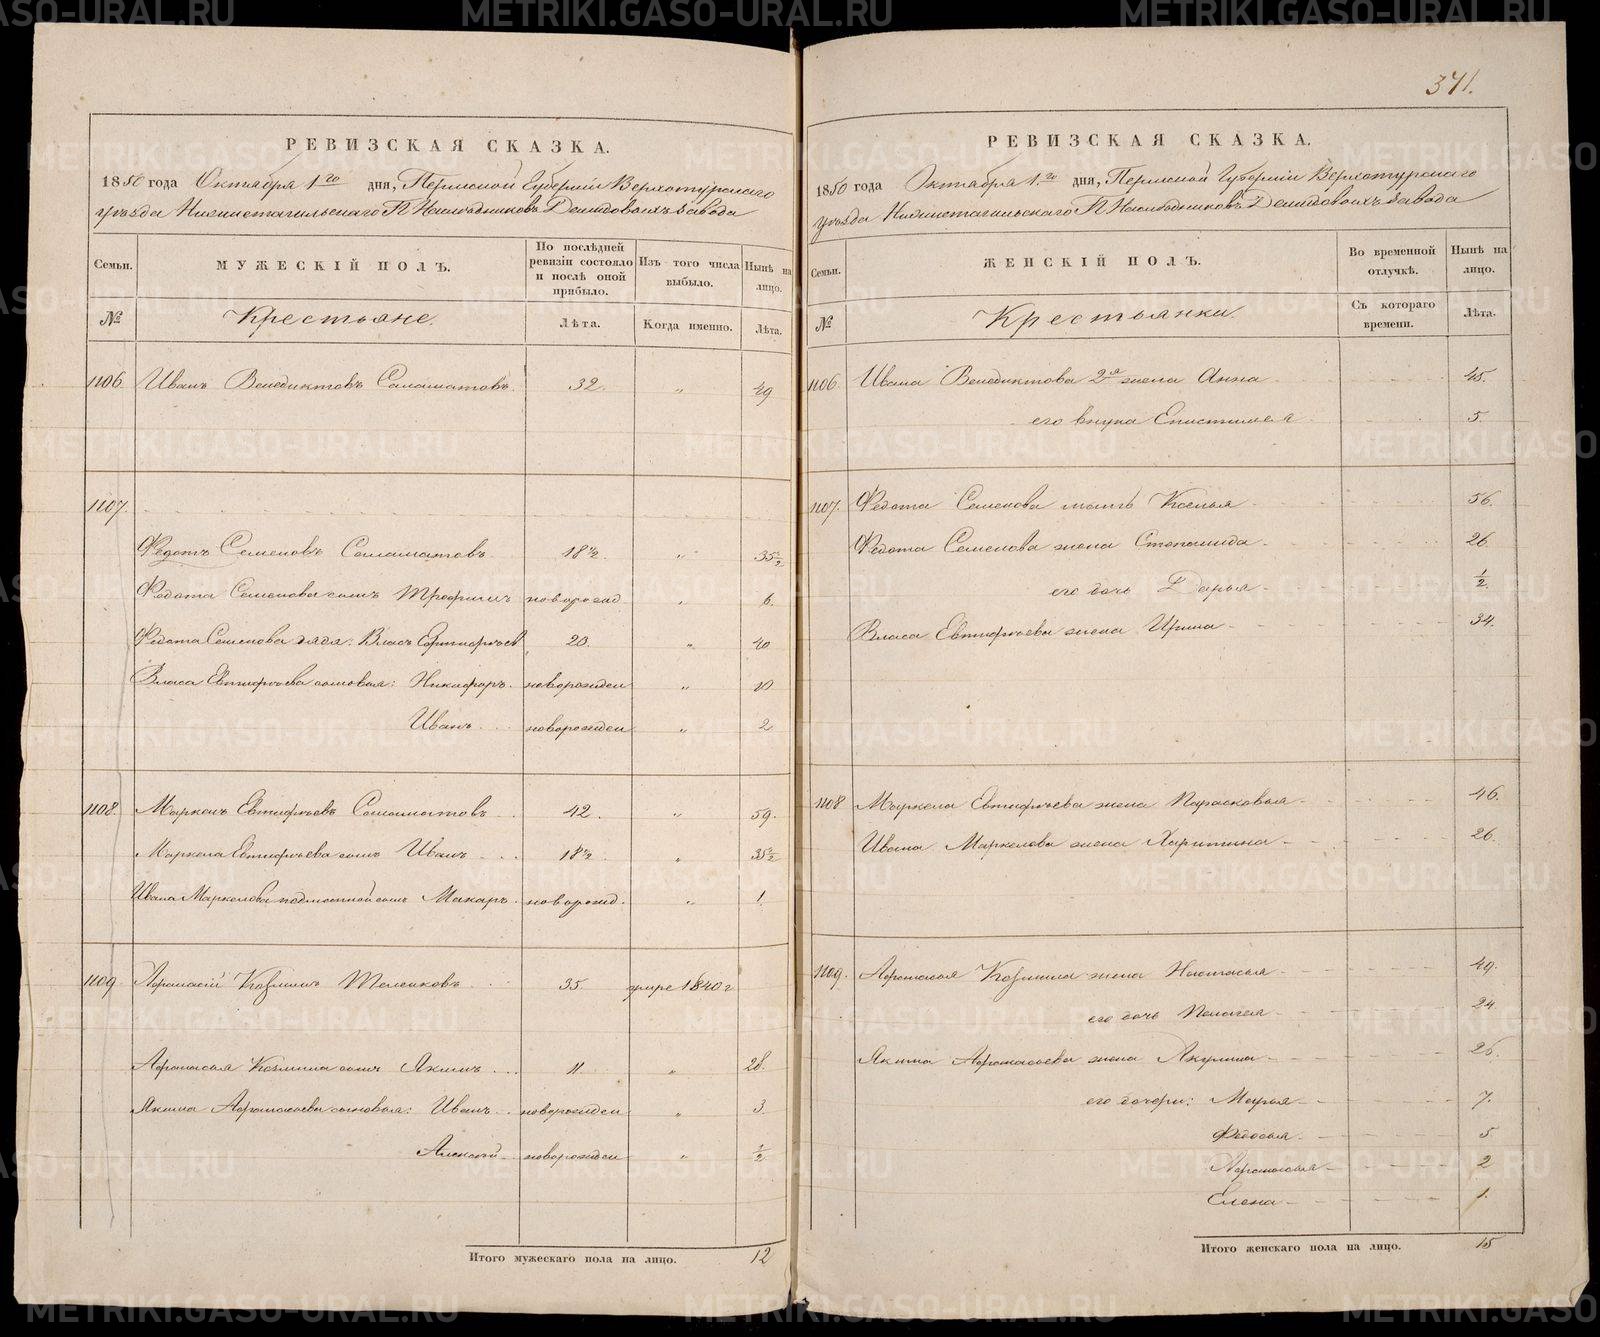 371.
РЕВИЗСКАЯ СКАЗКА.
1850 года Октября 1го дня, Пермской Губернiи Верхотурскаго
уѣзда Нижнетагильскаго Наслѣдниковъ Демидовыхъ завода
Семьи.
МУЖЕСКІЙ ПОЛЪ.
По послѣдней ревизіи состояло и послѣ оной прибыло.
Изъ того числа выбыло.
Нынѣ на лицо.
№
Крестьяне.
Лѣта.
Когда именно.
Лѣта.
1106. Иванъ Венедиктовъ Саламатовъ. 32. „ 49
1107.
Федотъ Семеновъ Саламатовъ 18½. „ 35½
Федота Семенова сынъ Трофимъ новорожд. „ 6.
Федота Семенова дядя: Власъ Евтифѣевъ 23. „ 40
Власа Евтифѣева сыновья: Никифоръ. новорожден „
Иванъ новорожден „ 2
1108. Маркелъ Евтифѣевъ Саламатовъ 42. „ 59.
Маркела Евтифѣева сынъ Иванъ 18½ „ 35½
Ивана Маркелова сынъ Макаръ новорожд. „ 1.
1109 Афанасій Козминъ 35. умре 1840 г
Афанасья Козмина сынъ Якимъ 11 „ 28.
Якима Афанасьева сыновья: Иванъ новорожден „ 3.
Алексѣй новорожден „ ½
Итого мужескаго пола на лицо. 12
РЕВИЗСКАЯ СКАЗКА.
1850 года Октября 1го дня, Пермской Губернiи Верхотурскаго
уѣзда Нижнетагильскаго Наслѣдниковъ Демидовыхъ завода
Семьи.
ЖЕНСКІЙ ПОЛЪ.
Во временной отлучкѣ.
Нынѣ на лицо.
№
Крестьянки.
Съ котораго времени.
Лѣта.
1106. Ивана Венедиктова 2я жена Анна 45.
его внука Епистимея 5.
1107. Федота Семенова мать Ксенья 56.
Федота Семенова жена Степанида 26
его дочь Дарья ½.
Власа Евтифѣева жена Ирина 34.
1108 Маркела Евтифѣева жена Парасковья 46.
Ивана Маркелова жена Харитина 26.
1109. Афанасья Козмина жена Настасья 49.
его дочь Пелагея 24
Якима Афанасьева жена Акулина 26.
его дочери: Марья 7.
Федосья 5
Афанасья 2
Елена 1.
Итого женскаго пола на лицо. 15
METRIKI.GASO-URAL.RU